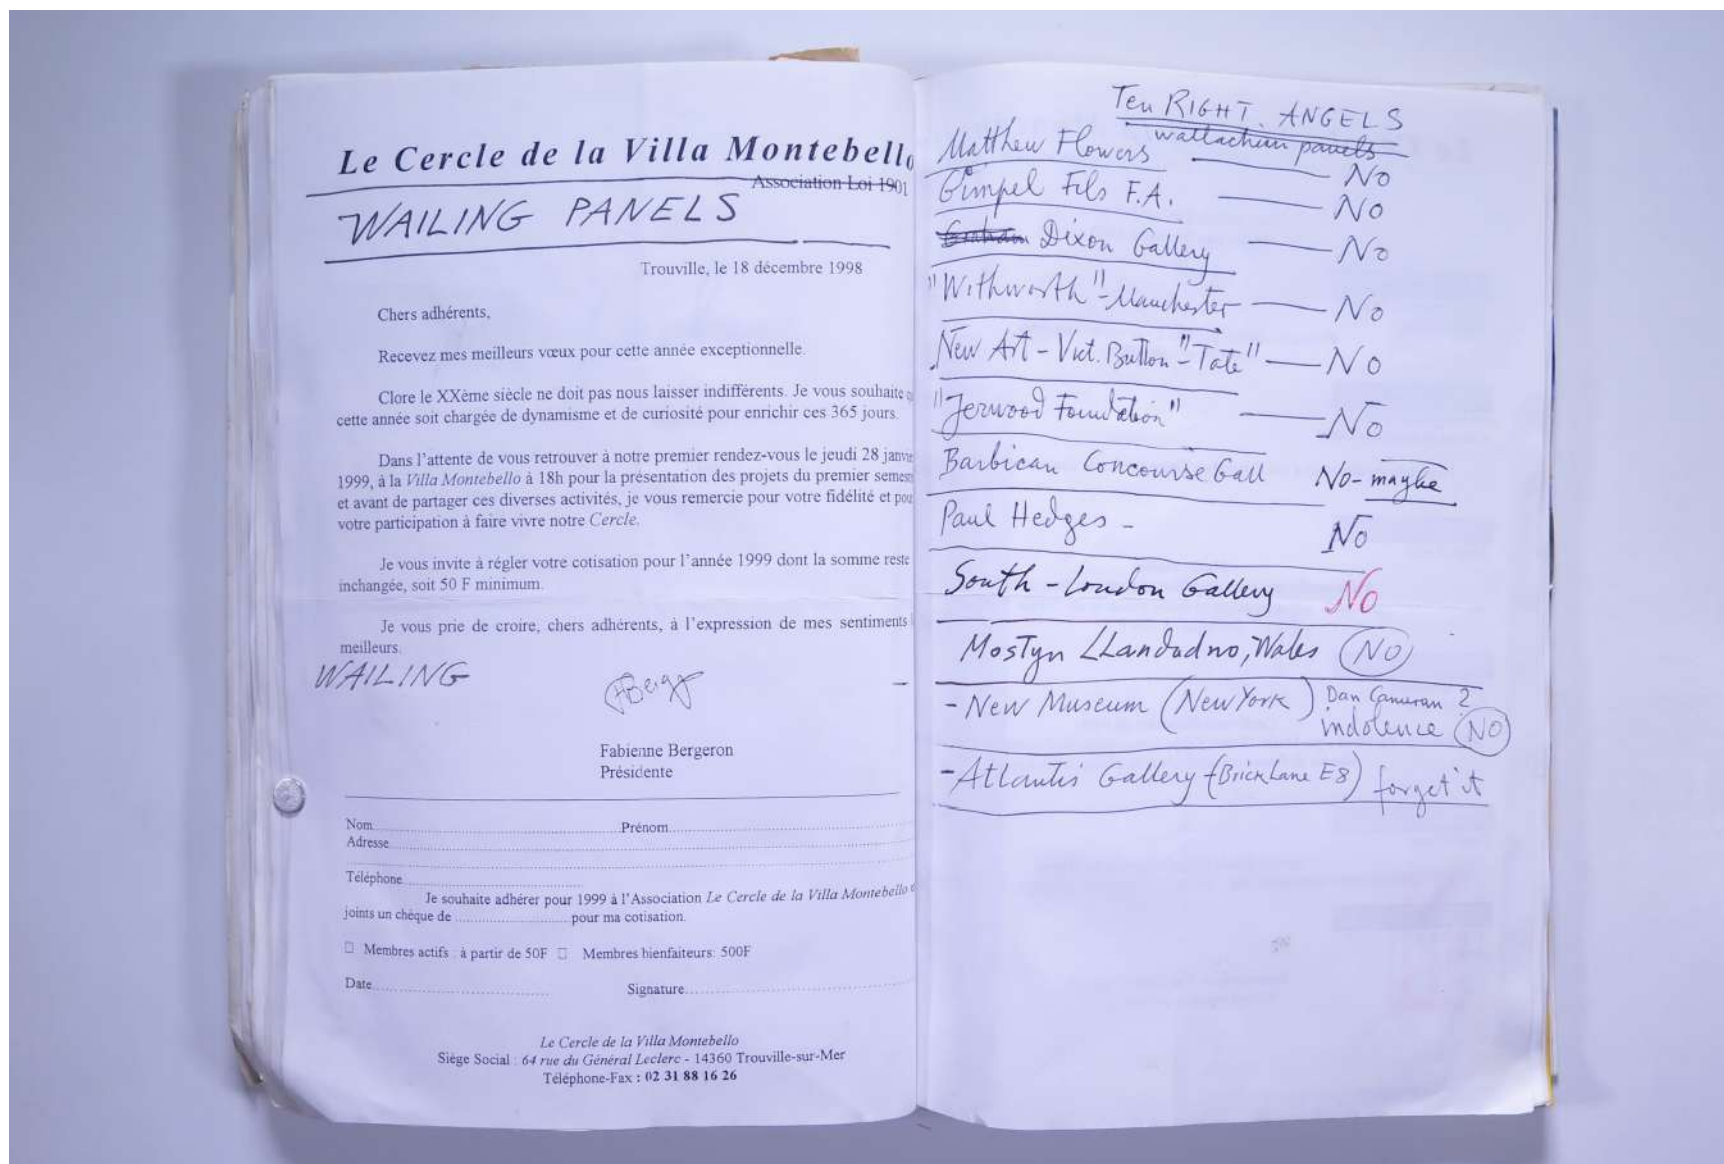 Le Cercle de la Villa Montebello
Association Loi 1901
WAILING PANELS
Trouville, le 18 décembre 1998
Chers adhérents,
Recevez mes meilleurs vœux pour cette année exceptionnelle.
Clore le XXème siècle ne doit pas nous laisser indifférents. Je vous souhaite
cette année soit chargée de dynamisme et de curiosité pour enrichir ces 365 jours.
Dans l'attente de vous retrouver à notre premier rendez-vous le jeudi 28 janvie
1999, à la Villa Montebello à 18h pour la présentation des projets du premier semes
et avant de partager ces diverses activités, je vous remercie pour votre fidélité et pou
votre participation à faire vivre notre Cercle.
Je vous invite à régler votre cotisation pour l'année 1999 dont la somme reste
inchangée, soit 50 F minimum.
Je vous prie de croire, chers adhérents, à l'expression de mes sentiments
meilleurs.
WAILING
Fabienne Bergeron
Présidente
Nom Prénom
Adresse
Téléphone
Je souhaite adhérer pour 1999 à l'Association Le Cercle de la Villa Montebello
joints un chèque de pour ma cotisation.
□ Membres actifs : à partir de 50F □ Membres bienfaiteurs: 500F
Date Signature
Le Cercle de la Villa Montebello
Siège Social : 64 rue du Général Leclerc - 14360 Trouville-sur-Mer
Téléphone-Fax : 02 31 88 16 26
Ten RIGHT. ANGELS
wallachian panels
Matthew Flowers — No
Gimpel Fils F.A. — No
Graham Dixon Gallery — No
"Withworth"-Manchester — No
New Art - Vict. Button - "Tate" — No
"Jerwood Foundation" — No
Barbican Concourse Gall No-maybe
Paul Hedges - No
South-London Gallery No
Mostyn LLandudno, Wales NO
- New Museum (New York) Dan Cameran ?
indolence NO
- Atlantis Gallery - (Brick Lane E8) forget it